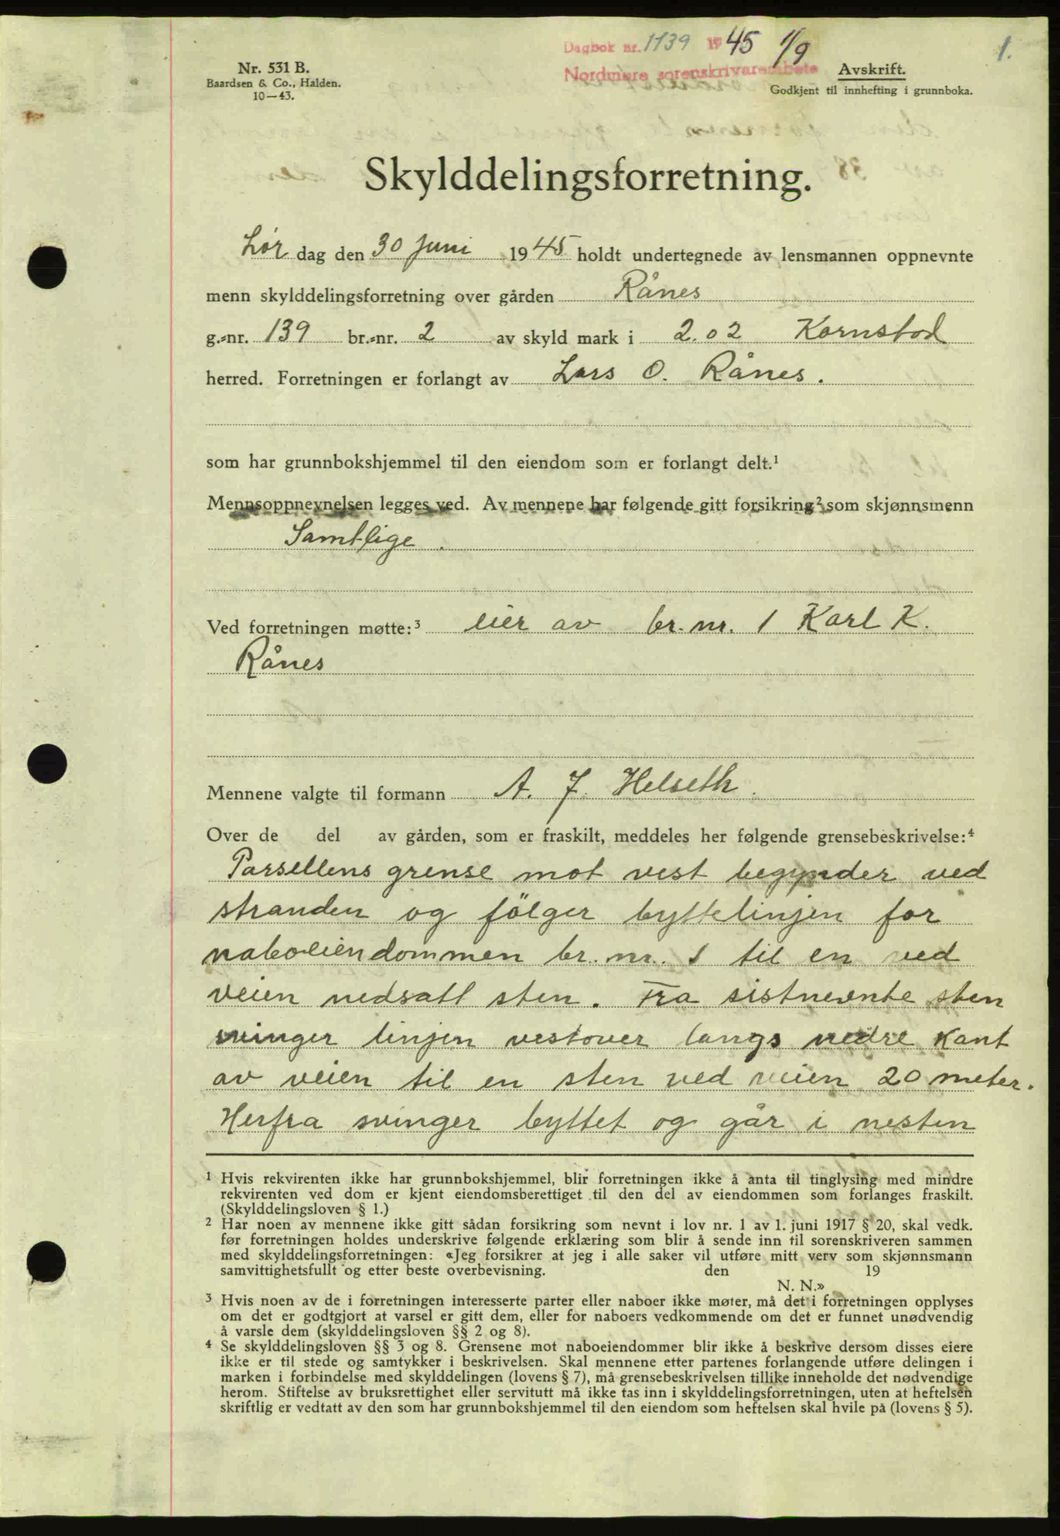 Dagbok nr. 1139 1945 1/9
Nordmøre sorenskrivarembete
1.
Nr. 531 B.
Baardsen & Co., Halden.
10—43.
Avskrift.
Godkjent til innhefting i grunnboka.
Skylddelingsforretning.
Lør dag den 30 juni 1945 holdt undertegnede av lensmannen oppnevnte
menn skylddelingsforretning over gården Rånes
g.-nr. 139 br.-nr. 2 av skyld mark i 2.02 Kornstad
herred. Forretningen er forlangt av Lars O. Rånes.
som har grunnbokshjemmel til den eiendom som er forlangt delt.¹
Mennsoppnevnelsen legges ved. Av mennene har følgende gitt forsikring² som skjønnsmenn
Samtlige.
Ved forretningen møtte:³ eier av br. nr. 1 Karl K.
Rånes
Mennene valgte til formann A. J. Helseth.
Over de del av gården, som er fraskilt, meddeles her følgende grensebeskrivelse:⁴
Parsellens grense mot vest begynder ved
stranden og fölger byttelinjen for
naboeiendommen br. nr. 1 til en ved
veien nedsatt sten. Fra sistnevnte sten
svinger linjen vestover langs nedre kant
av veien til en sten ved veien 20 meter.
Herfra svinger byttet og går i nesten
¹ Hvis rekvirenten ikke har grunnbokshjemmel, blir forretningen ikke å anta til tinglysing med mindre
rekvirenten ved dom er kjent eiendomsberettiget til den del av eiendommen som forlanges fraskilt.
(Skylddelingsloven § 1.)
² Har noen av mennene ikke gitt sådan forsikring som nevnt i lov nr. 1 av 1. juni 1917 § 20, skal vedk.
før forretningen holdes underskrive følgende erklæring som blir å sende inn til sorenskriveren sammen
med skylddelingsforretningen: «Jeg forsikrer at jeg i alle saker vil utføre mitt verv som skjønnsmann
samvittighetsfullt og etter beste overbevisning. den 19
N. N.»
³ Hvis noen av de i forretningen interesserte parter eller naboer ikke møter, må det i forretningen opplyses
om det er godtgjort at varsel er gitt dem, eller for naboers vedkommende om det er funnet unødvendig
å varsle dem (skylddelingsloven §§ 2 og 8).
⁴ Se skylddelingsloven §§ 3 og 8. Grensene mot naboeiendommer blir ikke å beskrive dersom disses eiere
ikke er til stede og samtykker i beskrivelsen. Skal mennene etter partenes forlangende utføre delingen i
marken i forbindelse med skylddelingen (lovens § 7), må grensebeskrivelsen tillike inneholde det nødvendige
herom. Stiftelse av bruksrettighet eller servitutt må ikke tas inn i skylddelingsforretningen, uten at heftelsen
skriftlig er vedtatt av den som har grunnbokshjemmel til den eiendom som heftelsen skal hvile på (lovens § 5).